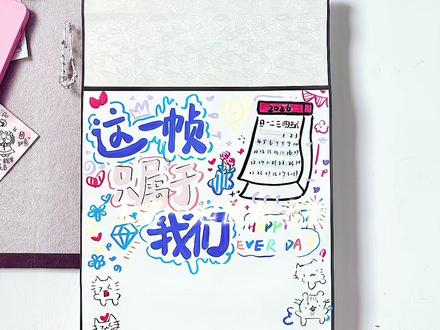 这一帧
只属于
我们
2026
日一二三四五
HAPPY
EVER DA